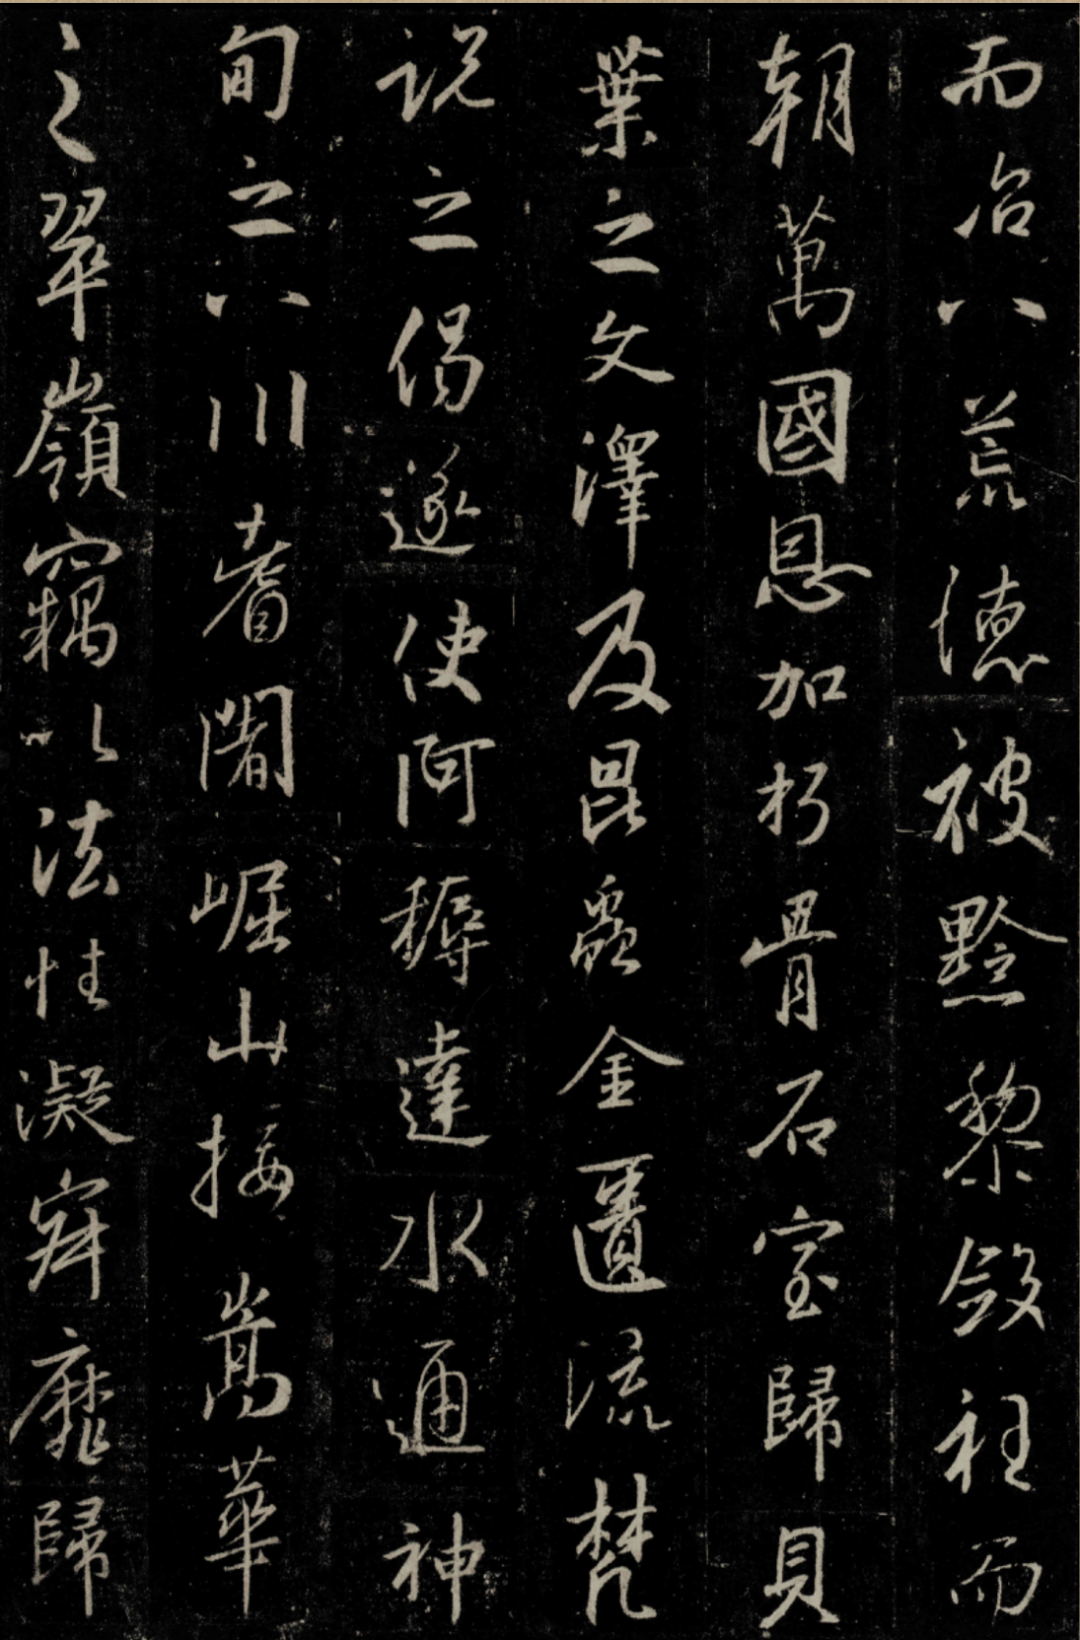 而冶八荒德被黔黎斂衽而
朝萬國恩加朽骨石室歸貝
葉之文澤及昆蟲金匱流梵
說之偈遂使阿耨達水通神
甸之八川耆闍崛山接嵩華
之翠嶺竊以法性凝寂靡歸